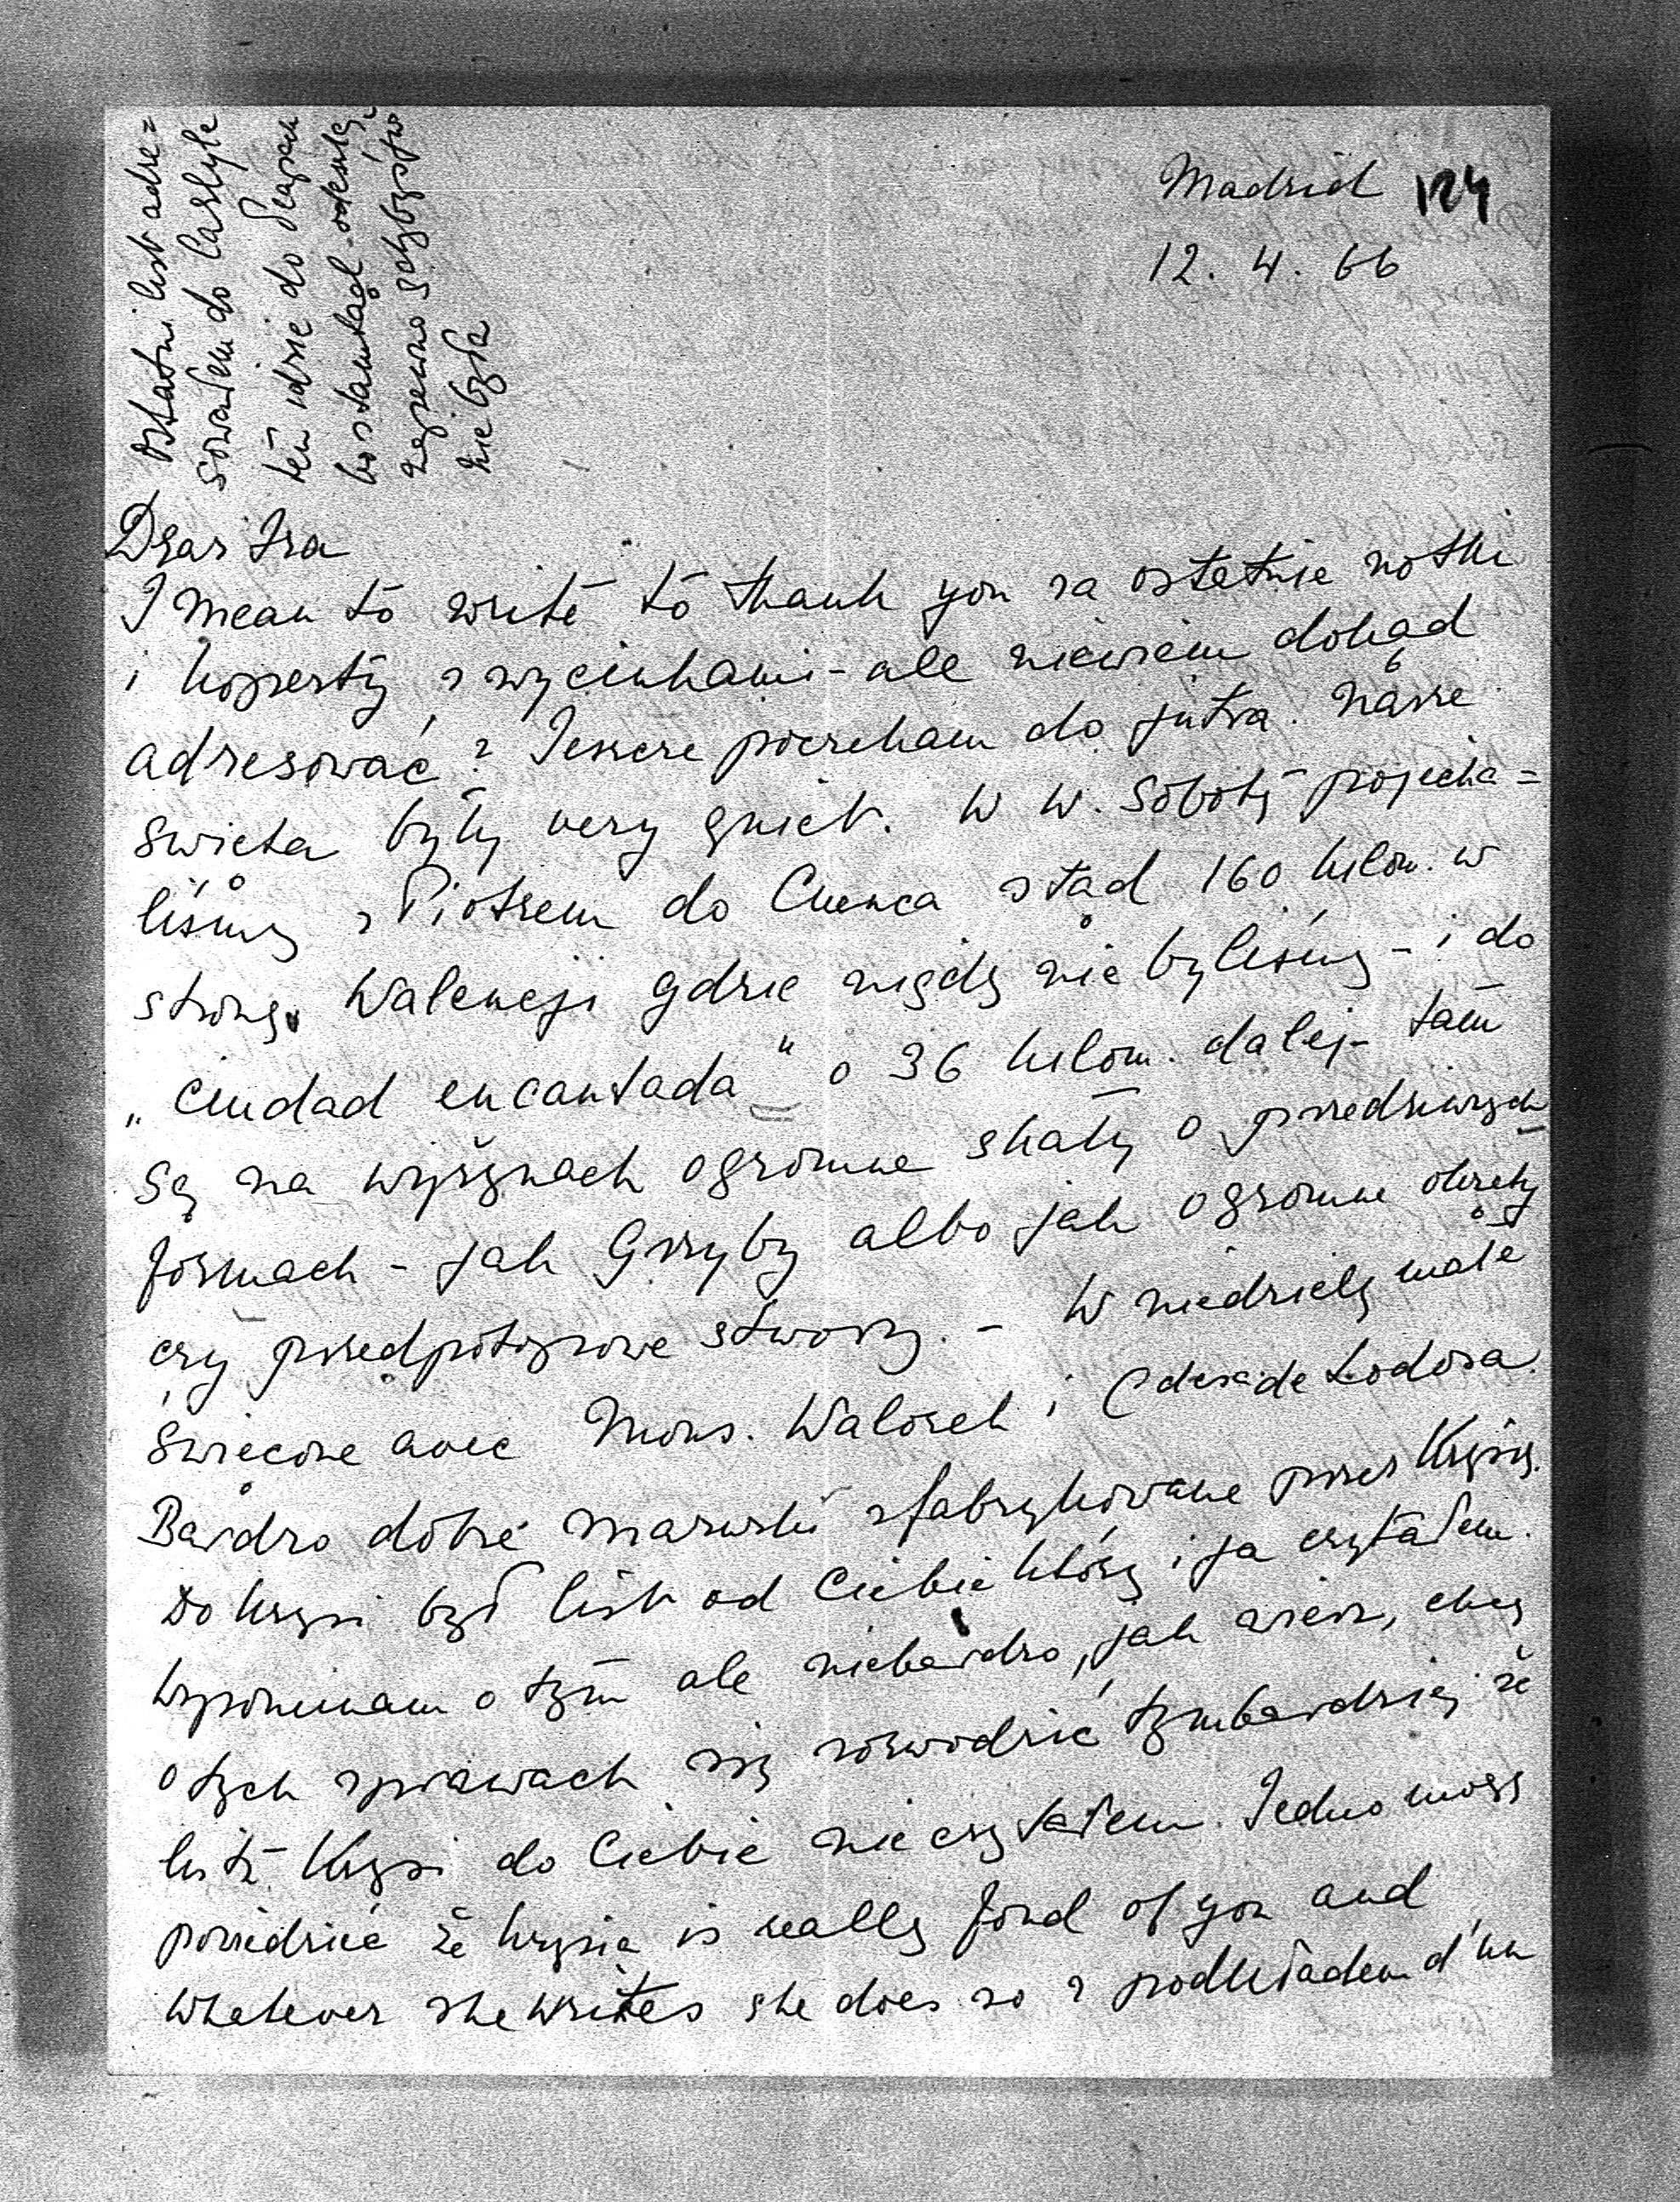 Madrid 124
12. 4. 66
Ostatni list adre=
sowałem do Carlyle
ten idzie do
bo stamtąd odesłą,
zapewno gdybyś tam
nie była
Dear Ira
I mean to write to thank you za ostatnie notki
i koperty z wycinkami - ale niewiem dokąd
adresować? Jeszcze poczekam do jutra. Nasze
święta były very quiet. W W. Sobotę pojecha=
liśmy z Piotrem do Cuenca stąd 160 kilom. w
stronę Walencji gdzie nigdy nie byliśmy - i do
„Ciudad encantada" o 36 kilom. dalej - tam
są na wyżynach ogromne skały o przedziwnych
formach - jak Grzyby albo jak ogromne okręty
czy przedpotopowe stwory. - W niedzielę małe
święcone avec Mons. Walorek i Cdesa de Lodosa.
Bardzo dobre mazurki sfabrykowane przez Krysię.
Do Krysi był list od Ciebie który i ja czytałem.
Wspominam o tym ale niebardzo, jak wiesz, chcę
o tych sprawach się rozwodzić tymbardziej że
listu Krysi do Ciebie nie czytałem. Jedno mogę
powiedzieć że Krysia is really fond of you and
whatever she writes she does so z podkładem d'un